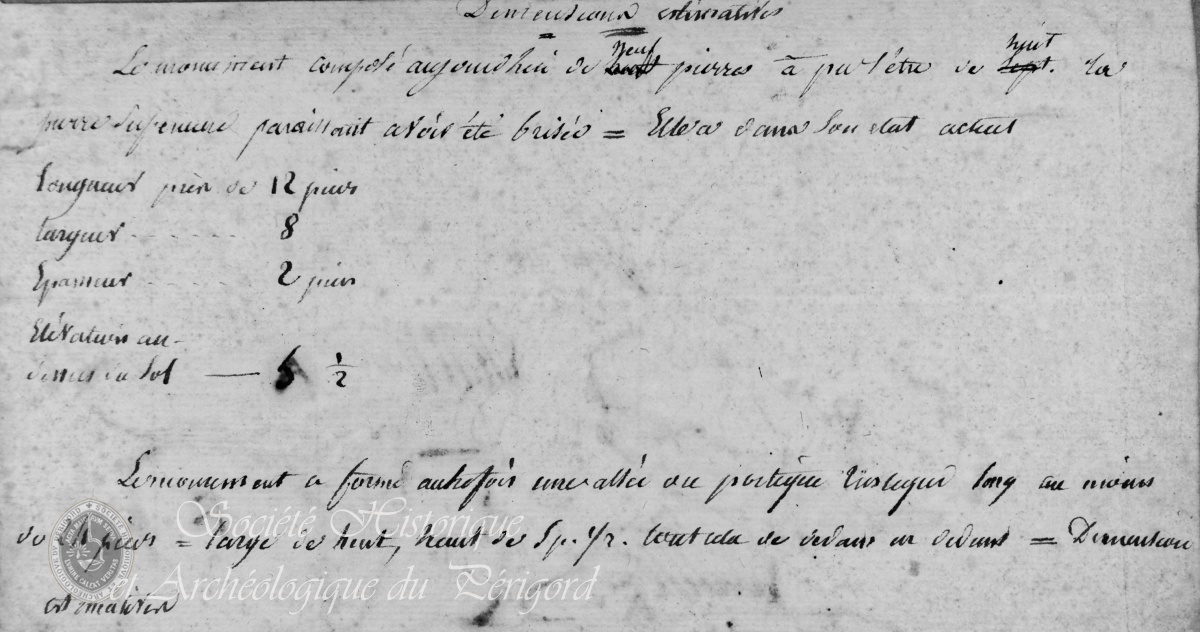 Dimensions estimatives
Le monument composé aujourd'hui de neuf pierres a pu l'être de huit. La
pierre supérieure paraissant avoir été brisée = Elle a dans son état actuel
Longueur près de 12 pieds
largeur 8
Epaisseur 2 pieds
Elévation au-
dessus du sol — 5 1/2
Le monument a formé autrefois une allée ou portique long au moins
de pieds = large de huit, haut de 5 p. 1/2. tout cela de dedans en dedans = Dimensions
estimatives
Société Historique
et Archéologique du Périgord